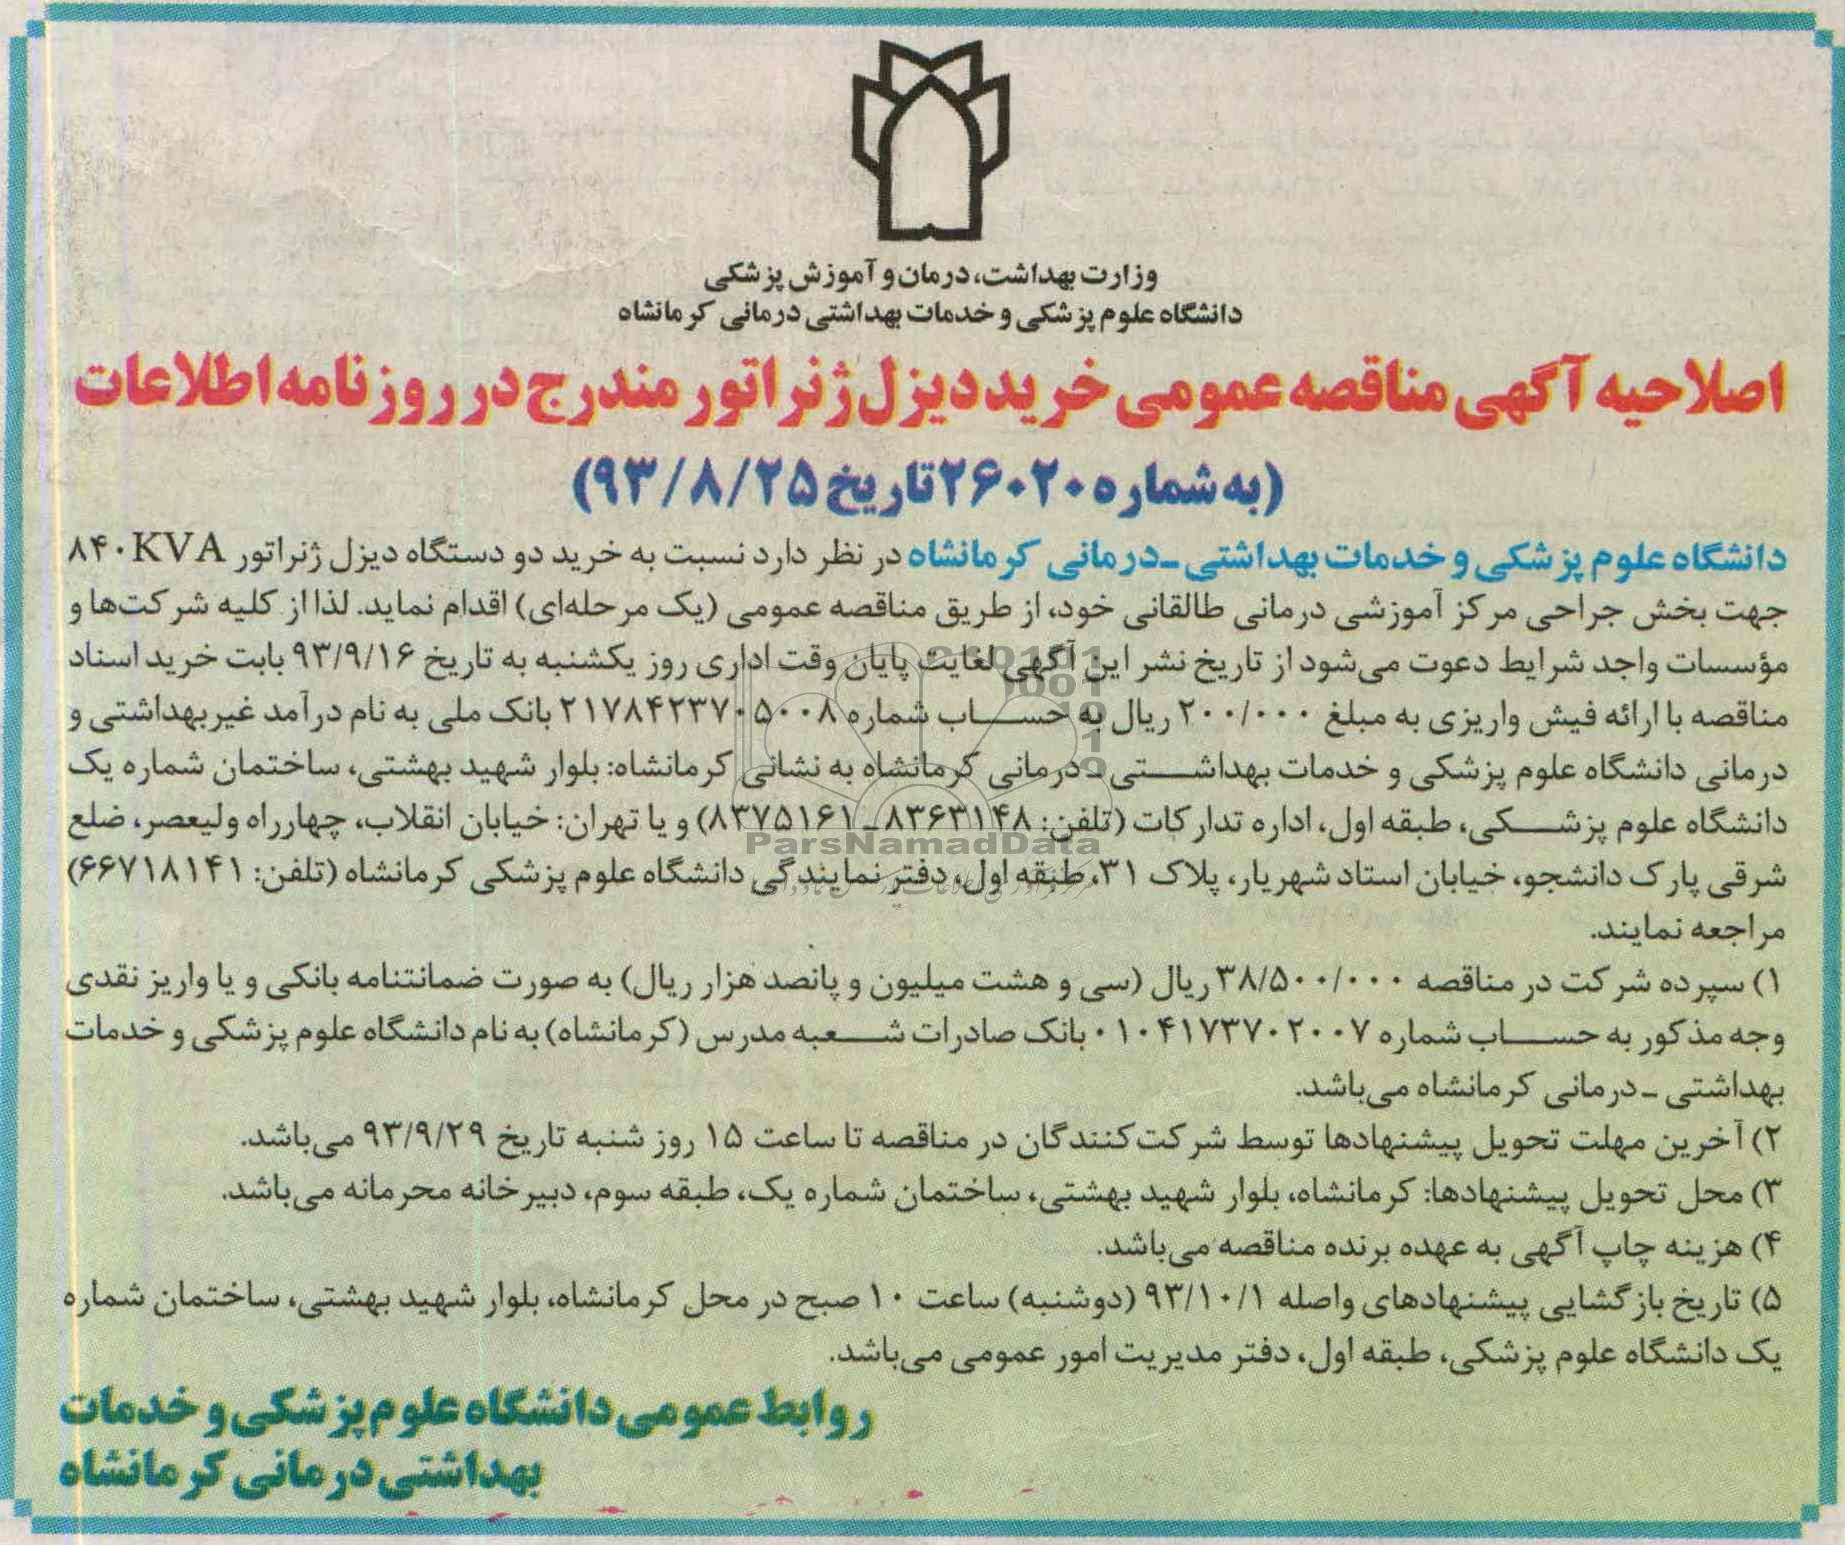 وزارت بهداشت، درمان و آموزش پزشکی
دانشگاه علوم پزشکی و خدمات بهداشتی درمانی کرمانشاه
اصلاحیه آگهی مناقصه عمومی خرید دیزل ژنراتور مندرج در روزنامه اطلاعات
(به شماره ۲۶۰۲۰ تاریخ ۹۳/۸/۲۵)
دانشگاه علوم پزشکی و خدمات بهداشتی ـ درمانی کرمانشاه در نظر دارد نسبت به خرید دو دستگاه دیزل ژنراتور ۸۴۰KVA
جهت بخش جراحی مرکز آموزشی درمانی طالقانی خود، از طریق مناقصه عمومی (یک مرحله‌ای) اقدام نماید. لذا از کلیه شرکت‌ها و
مؤسسات واجد شرایط دعوت می‌شود از تاریخ نشر این آگهی لغایت پایان وقت اداری روز یکشنبه به تاریخ ۹۳/۹/۱۶ بابت خرید اسناد
مناقصه با ارائه فیش واریزی به مبلغ ۲۰۰/۰۰۰ ریال به حساب شماره ۲۱۷۸۴۲۳۷۰۵۰۰۸ بانک ملی به نام درآمد غیربهداشتی و
درمانی دانشگاه علوم پزشکی و خدمات بهداشتی ـ درمانی کرمانشاه به نشانی کرمانشاه: بلوار شهید بهشتی، ساختمان شماره یک
دانشگاه علوم پزشکی، طبقه اول، اداره تدارکات (تلفن: ۸۳۶۳۱۴۸ ـ ۸۳۷۵۱۶۱) و یا تهران: خیابان انقلاب، چهارراه ولیعصر، ضلع
شرقی پارک دانشجو، خیابان استاد شهریار، پلاک ۳۱، طبقه اول، دفتر نمایندگی دانشگاه علوم پزشکی کرمانشاه (تلفن: ۶۶۷۱۸۱۴۱)
مراجعه نمایند.
۱) سپرده شرکت در مناقصه ۳۸/۵۰۰/۰۰۰ ریال (سی و هشت میلیون و پانصد هزار ریال) به صورت ضمانتنامه بانکی و یا واریز نقدی
وجه مذکور به حساب شماره ۰۱۰۴۱۷۳۷۰۲۰۰۷ بانک صادرات شعبه مدرس (کرمانشاه) به نام دانشگاه علوم پزشکی و خدمات
بهداشتی ـ درمانی کرمانشاه می‌باشد.
۲) آخرین مهلت تحویل پیشنهادها توسط شرکت‌کنندگان در مناقصه تا ساعت ۱۵ روز شنبه تاریخ ۹۳/۹/۲۹ می‌باشد.
۳) محل تحویل پیشنهادها: کرمانشاه، بلوار شهید بهشتی، ساختمان شماره یک، طبقه سوم، دبیرخانه محرمانه می‌باشد.
۴) هزینه چاپ آگهی به عهده برنده مناقصه می‌باشد.
۵) تاریخ بازگشایی پیشنهادهای واصله ۹۳/۱۰/۱ (دوشنبه) ساعت ۱۰ صبح در محل کرمانشاه، بلوار شهید بهشتی، ساختمان شماره
یک دانشگاه علوم پزشکی، طبقه اول، دفتر مدیریت امور عمومی می‌باشد.
روابط عمومی دانشگاه علوم پزشکی و خدمات
بهداشتی درمانی کرمانشاه
ParsNamadData